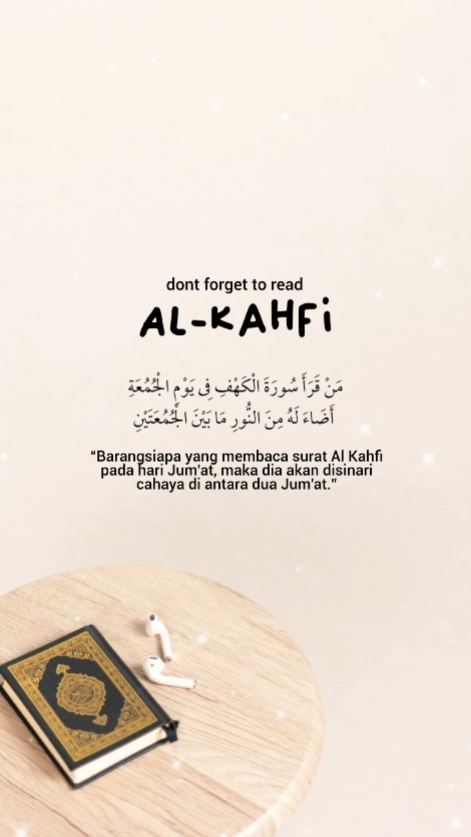 dont forget to read
AL-KAHFi
مَنْ قَرَأَ سُورَةَ الْكَهْفِ فِى يَوْمِ الْجُمُعَةِ
أَضَاءَ لَهُ مِنَ النُّورِ مَا بَيْنَ الْجُمُعَتَيْنِ
“Barangsiapa yang membaca surat Al Kahfi
pada hari Jum'at, maka dia akan disinari
cahaya di antara dua Jum'at.”